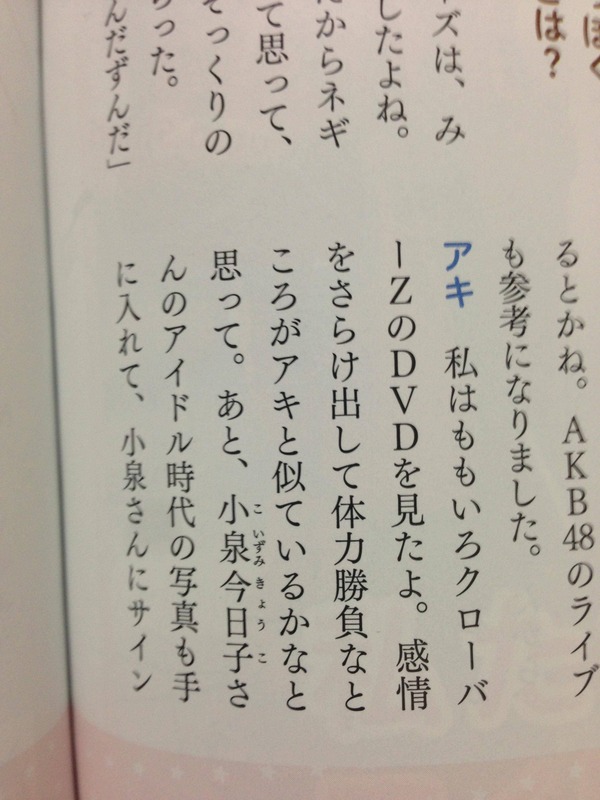 っぽく
とは？
ーズは、み
したよね。
だからネギ
て思って、
そっくりの
らった。
んだずんだ」
るとかね。AKB48のライブ
も参考になりました。
アキ　私はももいろクローバ
ーZのDVDを見たよ。感情
をさらけ出して体力勝負なと
ころがアキと似ているかなと
思って。あと、小泉今日子さ
こいずみきょうこ
んのアイドル時代の写真も手
に入れて、小泉さんにサイン